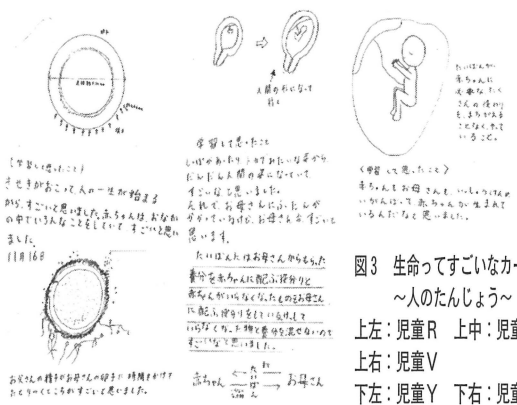 〈学習して思ったこと〉
きせきがおこって人の一生が始まる
から、すごいと思いました。赤ちゃんは、おなか
の中でいろんなことをしていて すごいと思い
ました。
11月16日
お父さんの精子がお母さんの卵子に 時間をかけて
たどりつくところがすごいと思いました。
人間の形になって
行く
学習して思ったこと
しっぽがあったり トカゲみたいな姿から
だんだん人間の姿になっていて
すごいなと思いました。
それで、お母さんにふたんが
かかっているけど、お母さんはすごいと
思います。
たいばんはお母さんからもらった
養分を赤ちゃんに配ぶ役わりと
赤ちゃんがいらなくなったものをお母さん
に配ぶ役わりをしているけして
いらなくなった物と養分を混ぜないので
すごいなと思いました。
赤ちゃん たいばん お母さん
たいばんが、
赤ちゃんに
必要なたく
さんの
を、まちがえる
ことなく
いること。
〈学習して思ったこと〉
赤ちゃんもお母さんも、いっしょうけんめ
いがんばって 赤ちゃんが生まれて
いるんだなと思いました。
図3 生命ってすごいなカー
〜人のたんじょう〜
上左：児童R 上中：児童
上右：児童V
下左：児童Y 下右：児童